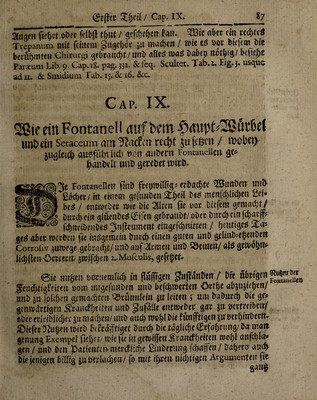 Erster Theil / Cap. IX. 87
Augen siehet oder selbst thut / geschehen kan. Wie aber ein rechtes
Trepanum mit seinem Zugehör zu machen / wie es vor diesem die
berühmten Chirurgi gebraucht / und alles was dabey nöthig / besiehe
Paræum Lib. 9 Cap. 18. pag. 332. & seq. Scultet. Tab. 2. Fig. 3. usque
ad 11. & Smidium Tab. 15. & 16. &c.
CAP. IX.
Wie ein Fontanell auf dem Haupt-Würbel
und ein Setaceum am Nacken recht zu setzen / wobey
zugleich ausführlich von andern Fontanellen ge-
handelt und geredet wird.
DIe Fontanellen sind freywillig-erdachte Wunden und
Löcher / in einem gesunden Theil des menschlichen Lei-
bes / entweder wie die Alten sie vor diesem gemacht /
durch ein glüendes Eisen gebrandt / oder durch ein scharff-
schneidendes Instrument eingeschnitten / heutiges Ta-
ges aber werden sie insgemein durch einen guten und gelind-etzenden
Corrosiv zuwege gebracht / und auf Armen und Beinen / als gewöhn-
lichsten Oertern zwischen 2. Musculis, gesetzet.
Sie nutzen vornemlich in flüssigen Zuständen / die übrigen
Feuchtigkeiten vom ungesunden und beschwerten Orthe abzuziehen /
und zu solchen gemachten Brünnlein zu leiten ; um dadurch die ge-
genwärtigen Kranckheiten und Zufälle entweder gar zu vertreiben /
oder erleidlicher zu machen / und auch wohl die künfftigen zu verhindern.
Dieser Nutzen wird bekräfftiget durch die tägliche Erfahrung / da man
genung Exempel siehet / wie sie in gewissen Kranckheiten wohl anschla-
gen / und den Patienten merckliche Linderung schaffen / dahero auch
die jenigen billig zu verlachen / so mit ihren nichtigen Argumenten sie
gantz
Nutzen der
Fontanellen